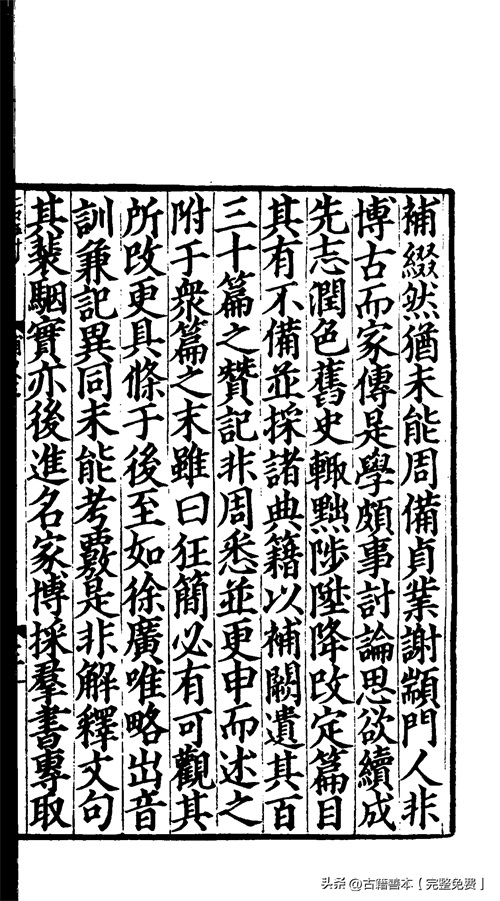 補綴然猶未能周備貞業謝顓門人非
博古而家傳是學頗事討論思欲續成
先志潤色舊史輙黜陟陞降改定篇目
其有不備並採諸典籍以補闕遺其百
三十篇之贊記非周悉並更申而述之
附于衆篇之末雖曰狂簡必有可觀其
所改更具條于後至如徐廣唯略出音
訓兼記異同未能考覈是非解釋文句
其裴駰實亦後進名家博採羣書專取
头条 @古籍善本【完整免费】